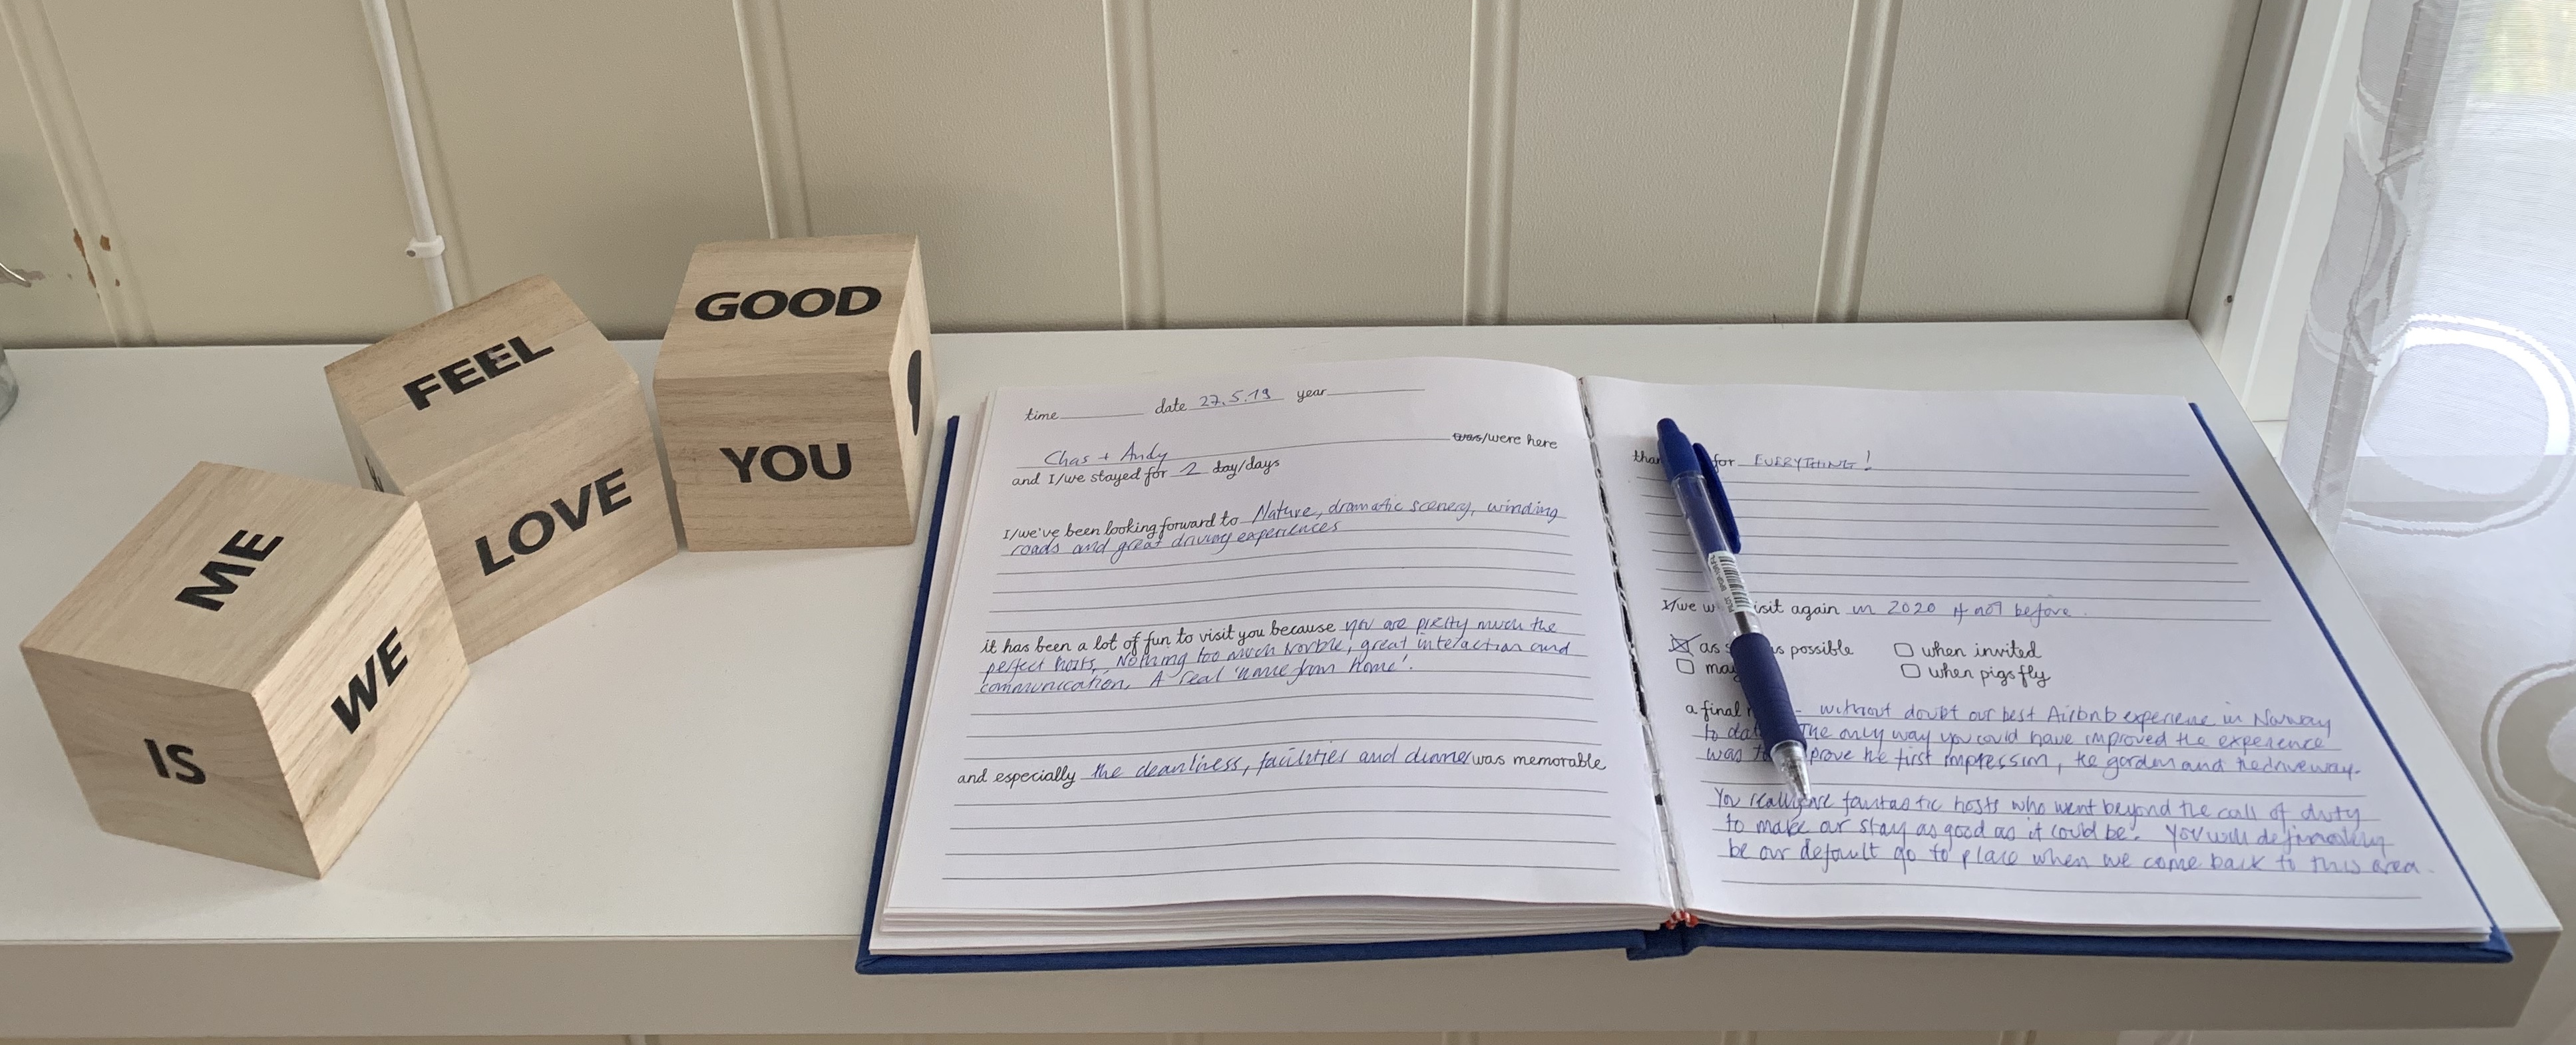 GOOD
FEEL
YOU
LOVE
ME
WE
IS
time date 27.5.19 year
Chas + Andy was/were here
and I/we stayed for 2 day/days
I/we've been looking forward to Nature, dramatic scenery, winding
roads and great driving experiences
it has been a lot of fun to visit you because you are pretty much the
perfect hosts. Nothing too much trouble, great interaction and
communication. A real 'home from home'.
and especially the cleanliness, facilities and dinner was memorable
for EVERYTHING!
I/we again in 2020 if not before.
as possible when invited
when pigs fly
a final - without doubt our best Airbnb experience in Norway
to The only way you could have improved the experience
was the first impression, the garden and the driveway.
You really are fantastic hosts who went beyond the call of duty
to make our stay as good as it could be. You will definately
be our default go to place when we come back to this area.